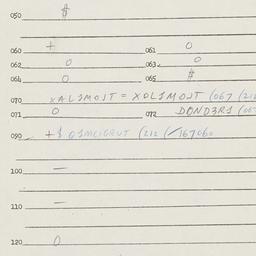 050 $
060 + 061 0
062 0 063 0
064 0 065 $
070 XAL1MOJT = XOL1MOJT (067 (212
071 0 072 DOND3R1 (06
090 + $
100 —
110 —
120 0